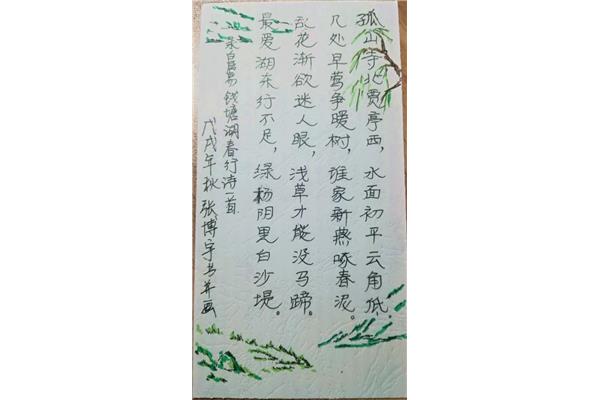 孤山寺北贾亭西，水面初平云角低。
几处早莺争暖树，谁家新燕啄春泥。
乱花渐欲迷人眼，浅草才能没马蹄。
最爱湖东行不足，绿杨阴里白沙堤。
录白居易钱塘湖春行诗一首
戊戌年秋 张博宇书并画